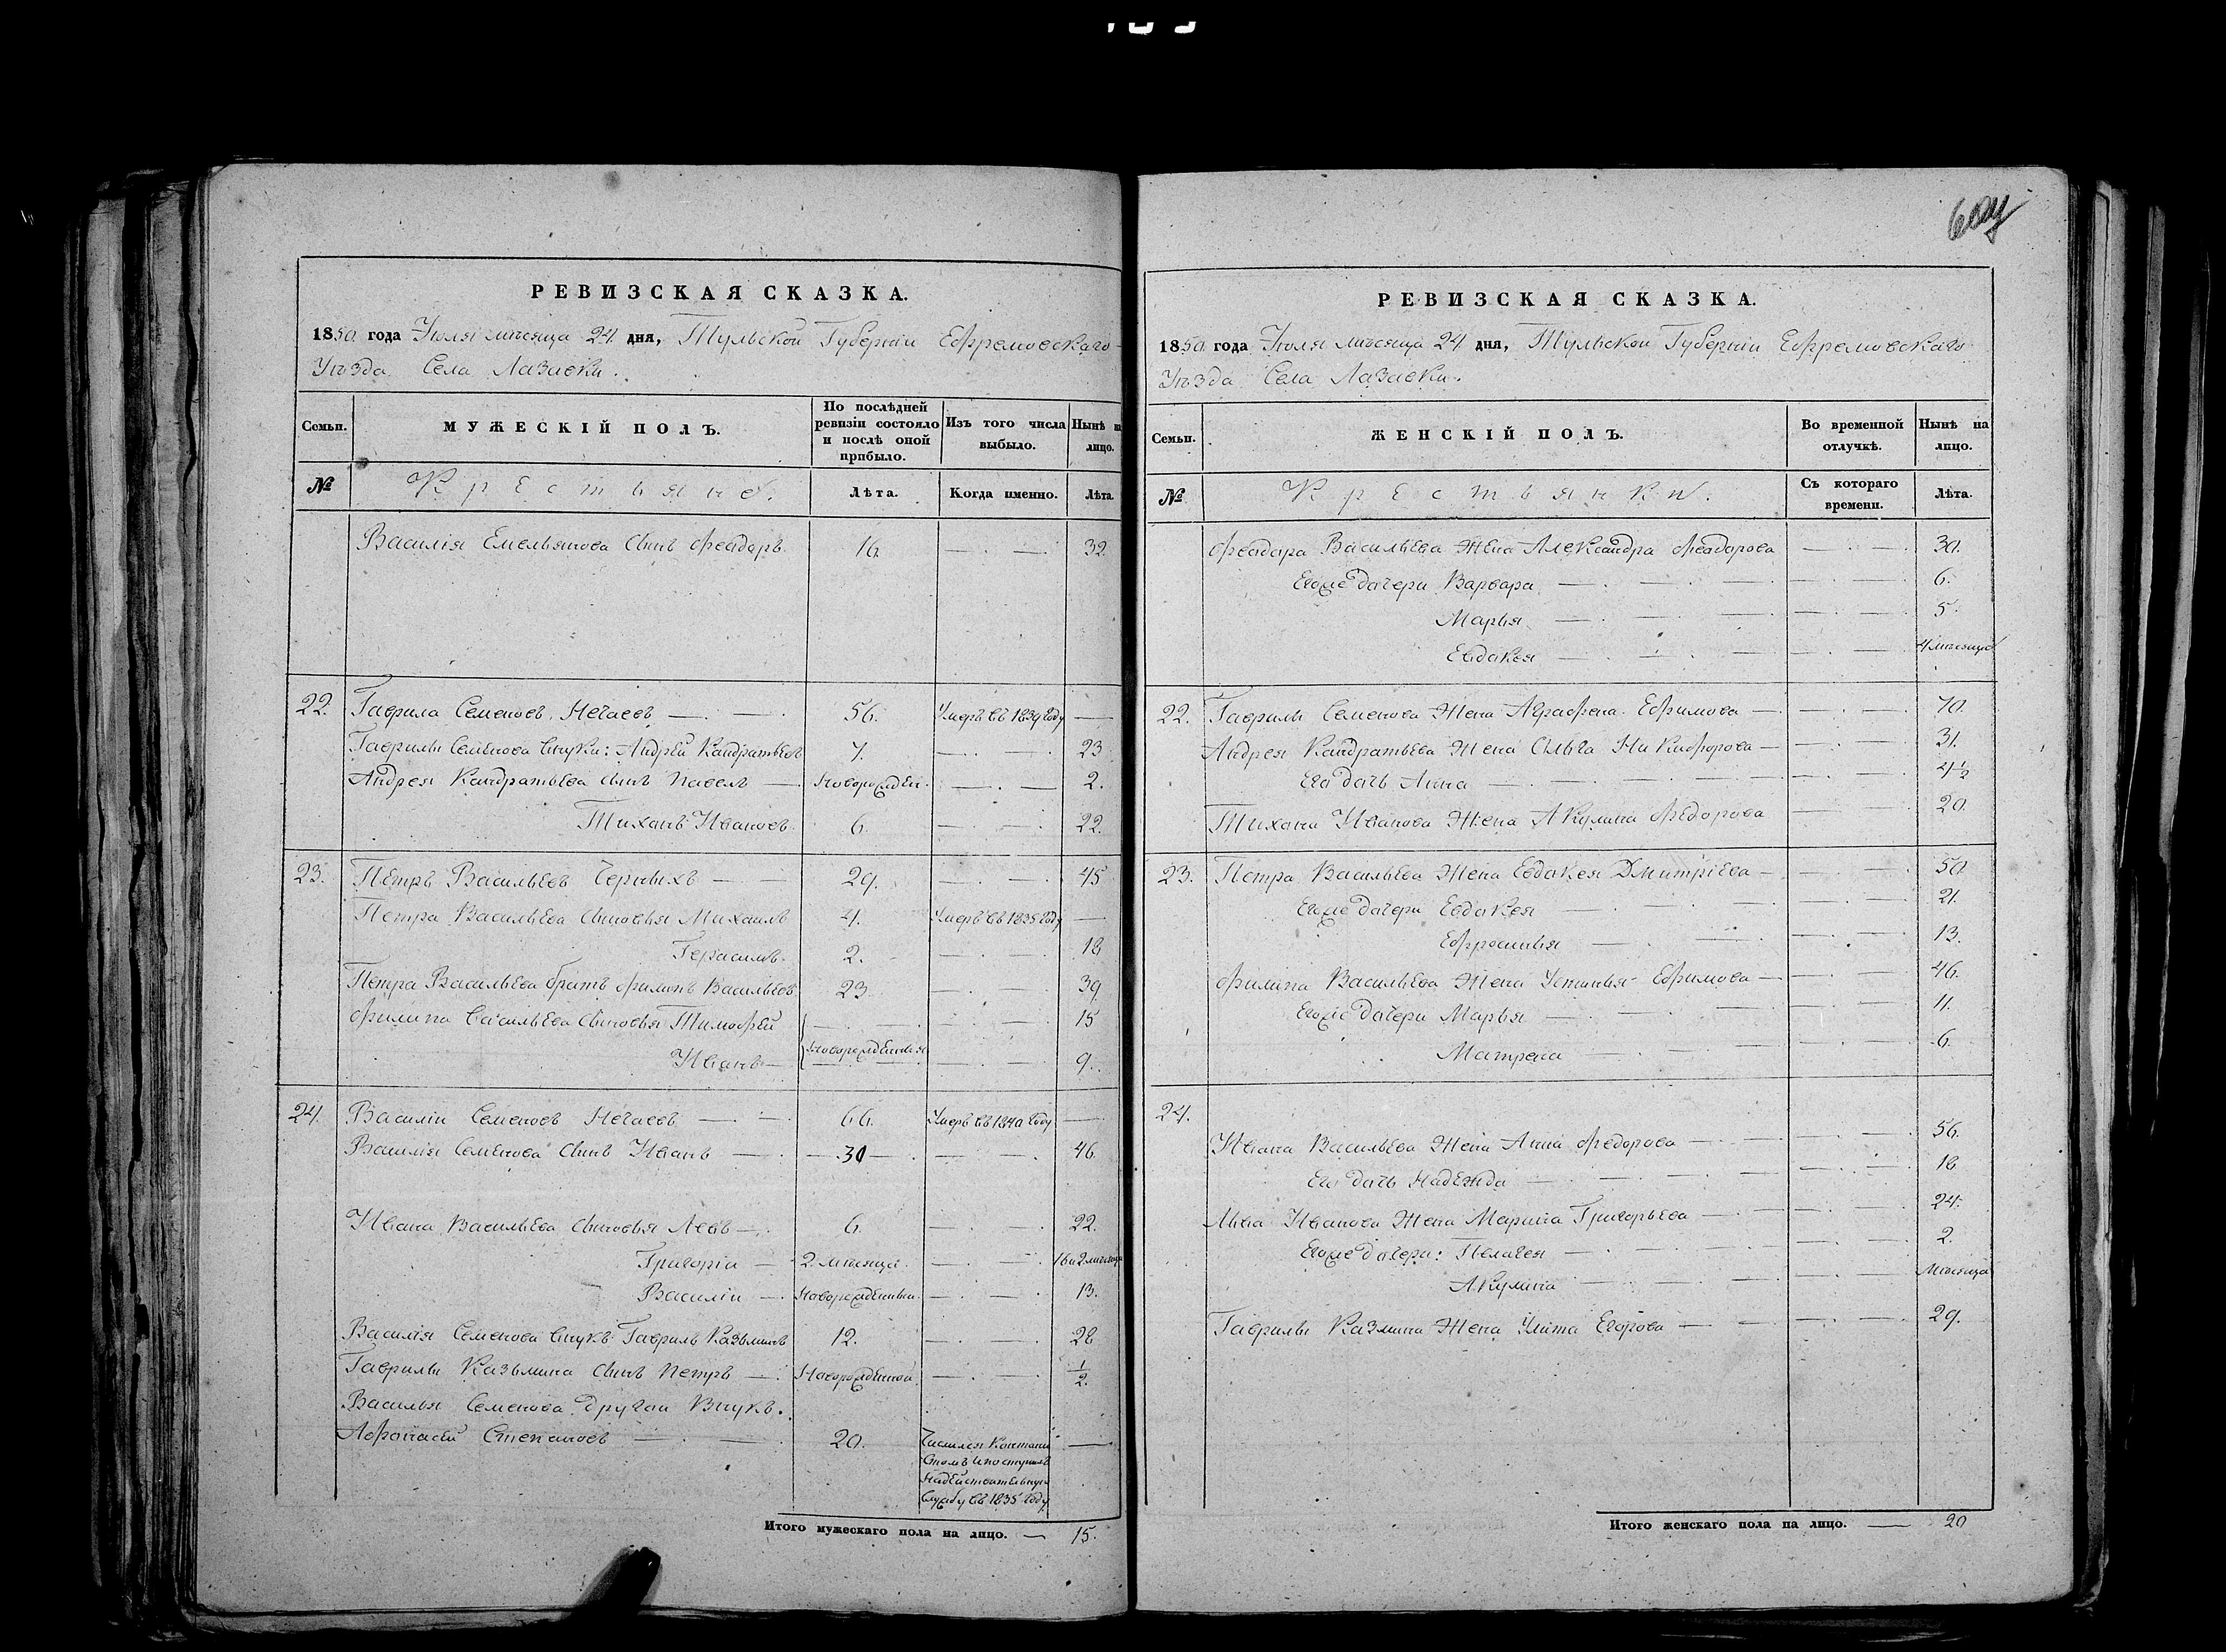 РЕВИЗСКАЯ СКАЗКА.
1850 года Іюля мѣсяца 24 дня, Тульской Губерніи Ефремовскаго
Уѣзда Села Лазавки.
Семьи.
МУЖЕСКІЙ ПОЛЪ.
По послѣдней ревизіи состояло и послѣ оной прибыло.
Изъ того числа выбыло.
Нынѣ на лицо.
№
Крестьяне.
Лѣта.
Когда именно.
Лѣта
Василія Емельянова сынъ Феадаръ. 16 32.
22. Гаврила Семеновъ Нечаевъ 56. Умеръ въ 1839 году
Гаврилы Семенова внуки: Андрей Кандратьевъ 7. 23
Андрея Кандратьева сынъ Павелъ Новорожден. 2.
Тиханъ Ивановъ 6. 22.
23. Петръ Васильевъ Черныхъ 29. 45
Петра Васильева сыновья Михаилъ 4. Умеръ въ 1835 году
Герасимъ 2. 18
Петра Васильева братъ Филипъ Васильевъ 23 39
Филипа Васильева сыновья Тимофей 15
Иванъ Новорожденныя 9.
24. Василіи Семеновъ Нечаевъ 66. Умеръ въ 1840 году
Василія Семенова сынъ Иванъ 30 46
Ивана Васильева сыновья Левъ 6. 22.
Григоріи 2 мѣсяца. 16 и 2 мѣсяца
Василіи Новорожденныи. 13.
Василія Семенова внукъ Гаврилъ Казьминъ 12. 28
Гаврилы Казьмина сынъ Петръ Новорожденной. 1/2.
Василья Семенова другои Внукъ.
Афонасей Степановъ 20. Числился Контани
стомъ и поступилъ
на действительную
службу въ 1835 году
Итого мужескаго пола на лицо. 15.
РЕВИЗСКАЯ СКАЗКА.
1850 года Іюля мѣсяца 24 дня, Тульской Губерніи Ефремовскаго
Уѣзда Села Лазавки.
Семьи.
ЖЕНСКІЙ ПОЛЪ.
Во временной отлучкѣ.
Нынѣ на лицо.
№
Крестьянки.
Съ котораго времени.
Лѣта.
Феадара Васильева жена Александра Феадарова 30.
Егоже дачери Варвара 6.
Марья 5.
Евдакея 4 мѣсяца
22. Гаврилы Семенова жена Аграфена Ефимова 70.
Андрея Кандратьева жена Ольга Никифорова 31.
Его дачь Анна 4 1/2
Тихана Иванова жена Акулина Федорова 20
23. Петра Васильева жена Евдакея Дмитріева 50
Егоже дачери Евдакея 21.
Ефросинья 13.
Филипа Васильева жена Устинья Ефимова 46.
Егоже дачери Марья 11.
Матрена 6.
24.
Ивана Васильева жена Анна Федорова 56.
Его дачь Надежда 18
Льва Иванова жена Марина Григорьева 24.
Егоже дачери: Пелагея 2.
Акулина Мѣсяца
Гаврилы Казмина жена Улита Егорова 29.
Итого женскаго пола на лицо. 20